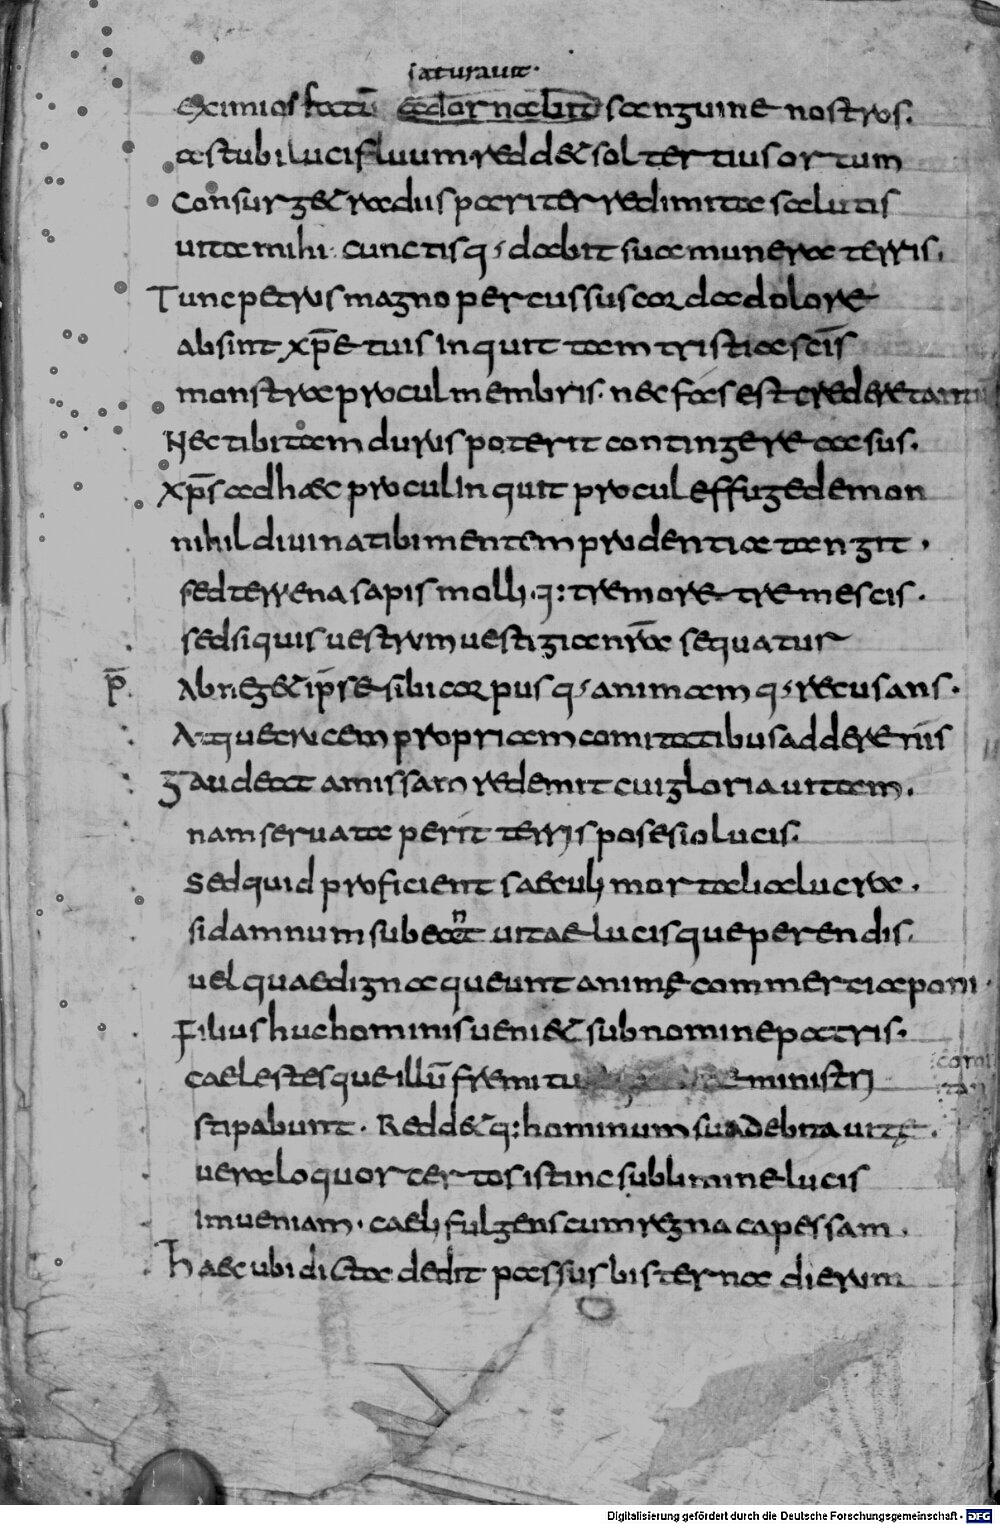 saturauit·
eximios factū adornabit sanguine nostros.
ast ubi lucifluum redd& sol tertius ortum
Consurg& radus pariter redimita salutis
uita mihi· cunctisq; dabit sua munera terris.
Tunc petrus magno percussus corda dolore
absint xp̄e tuis Inquit tam tristia sc̄is
monstra procul membris· nec fas est credere
Nec tibi tam durus poterit contingere casus.
xp̄s ad haec procul Inquit procul effuge demon
nihil diuina tibi mentem prudentia tangit ·
sed terrena sapis molliq: tremore tremescis ·
sed siquis uestrum uestigia nr̄a sequatur
p̄. Abneg& ip̄se sibi corpusq; animamq; recusans ·
Atque crucem propriam comitatibus addere nr̄is
gaudeat amissam redemit cui gloria uitam.
nam seruata perit terris posesio lucis.
Sed quid proficient saeculi mortalia lucra ·
si damnum subeant uitae lucisque perendis.
uel quae digna queunt animę commertia poni·
Filius huc hominis ueni& sub nomine patris·
caelestesque illū ministri
stipabunt · Redd&q: hominum sua debita uitę ·
uera loquor certos istinc sublimine lucis
Inueniam · caeli fulgens cum regna capessam ·
Haec ubi dicta dedit passus bis terna dierum